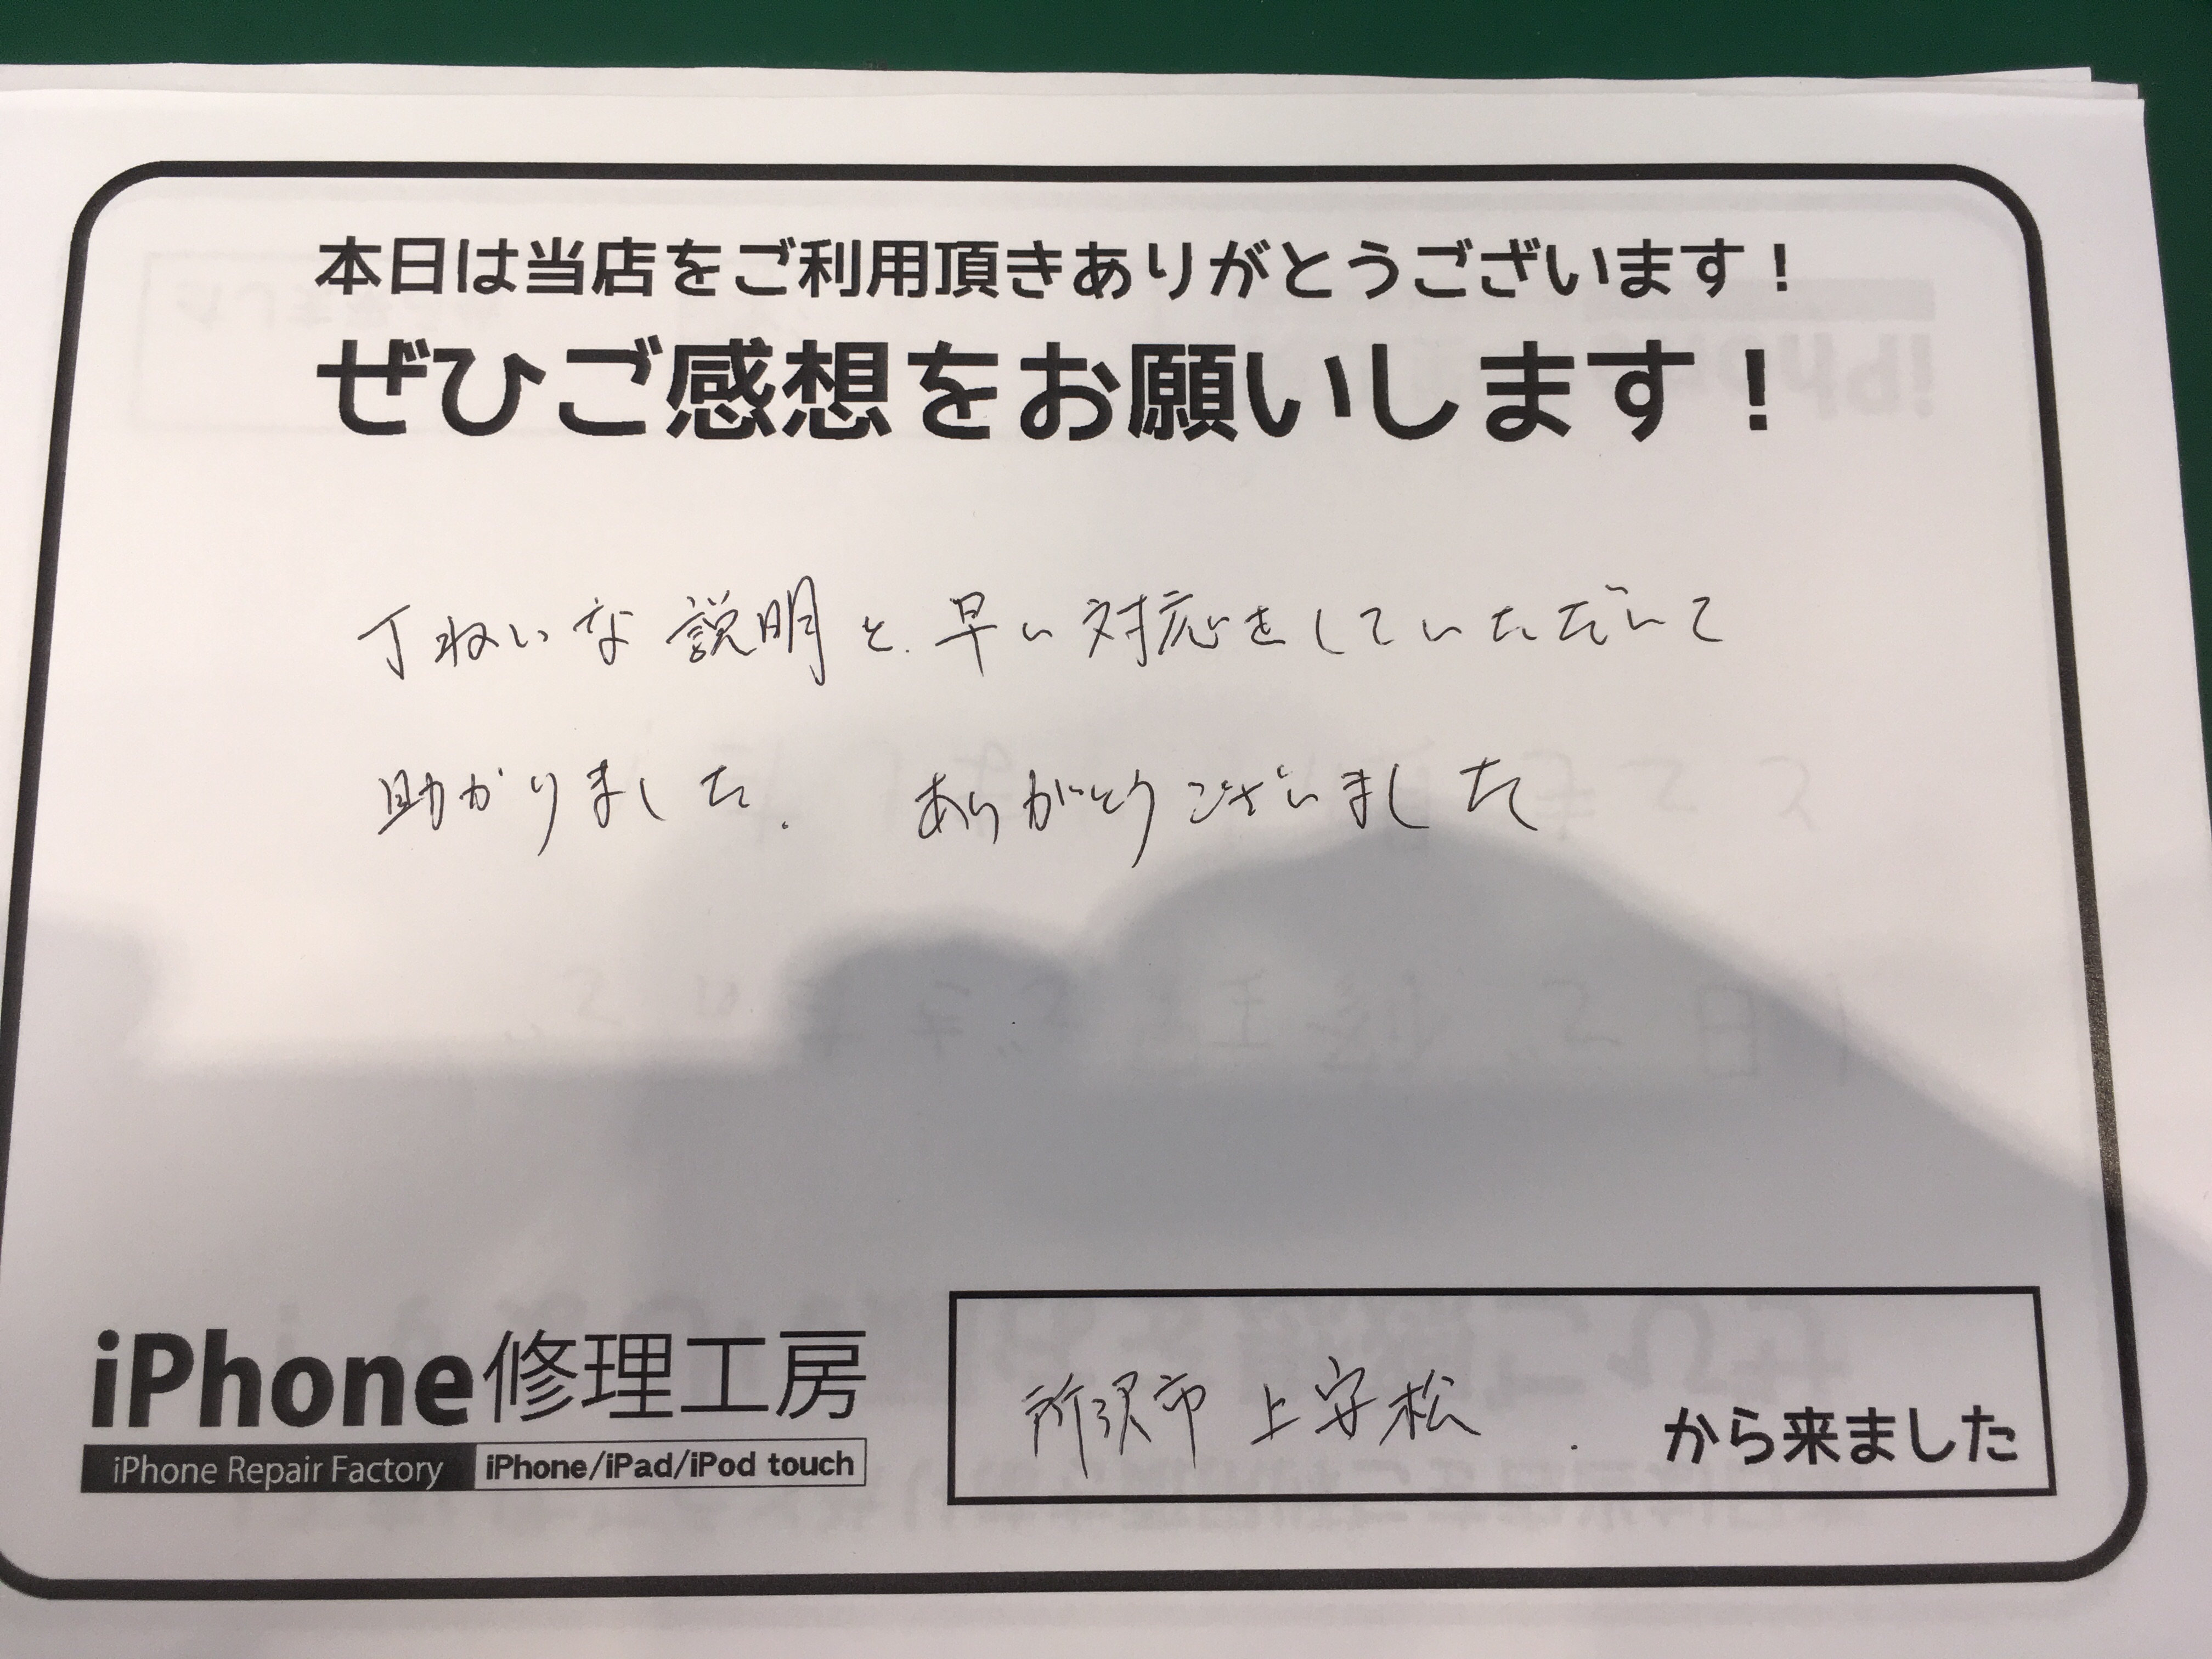 本日は当店をご利用頂きありがとうございます！
ぜひご感想をお願いします！
丁ねいな説明と、早い対応をしていただいて
助かりました。 ありがとうございました
iPhone修理工房
iPhone Repair Factory iPhone/iPad/iPod touch
所沢市 上安松 から来ました